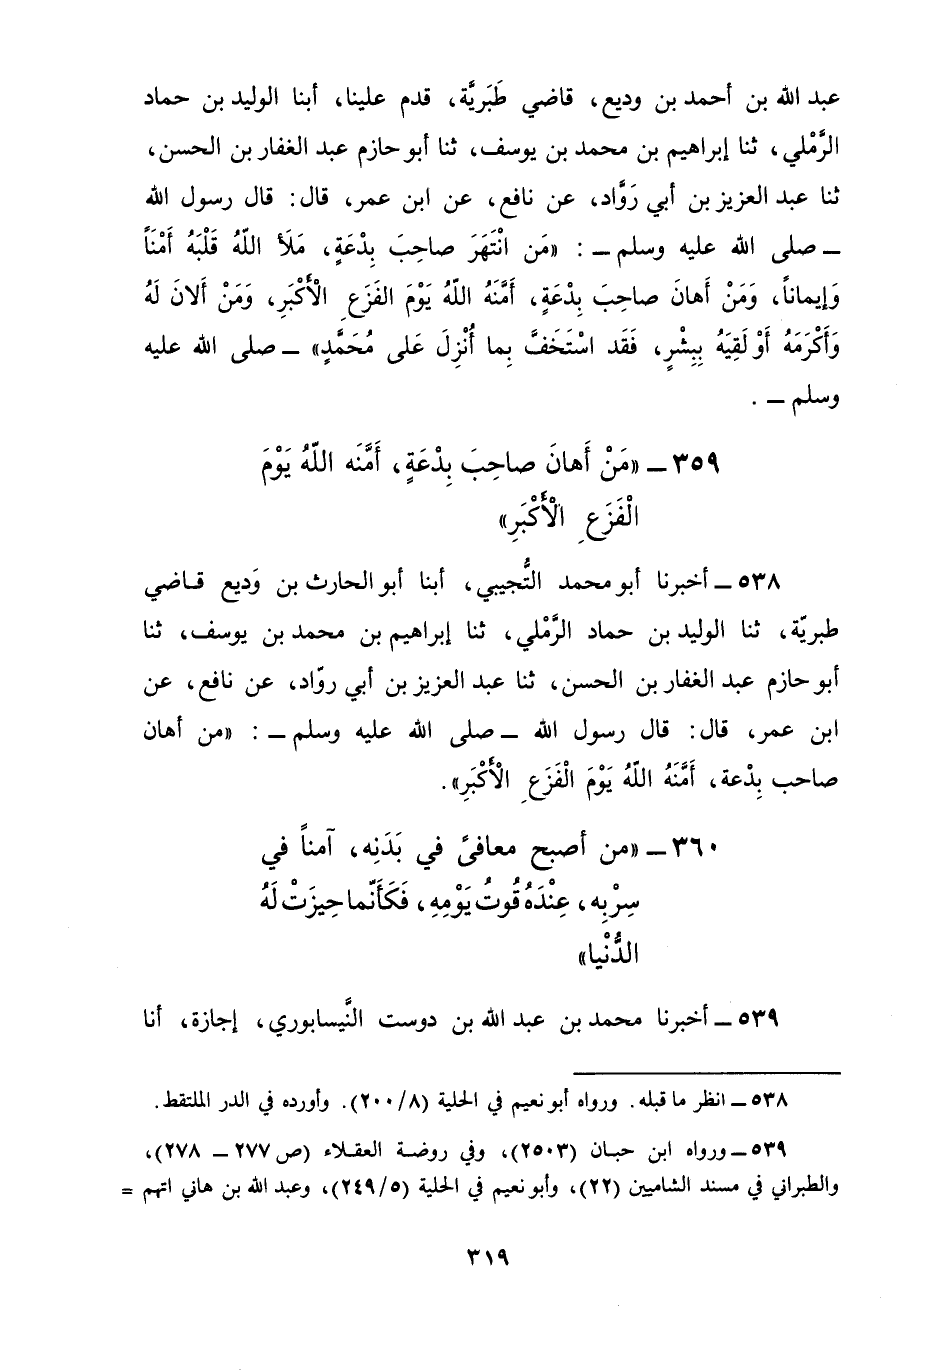 عبد الله بن أحمد بن وديع، قاضي طَبَريَّة، قدم علينا، أبنا الوليد بن حماد
الرَّمْلي، ثنا إبراهيم بن محمد بن يوسف، ثنا أبو حازم عبد الغفار بن الحسن،
ثنا عبد العزيز بن أبي رَوَّاد، عن نافع، عن ابن عمر، قال: قال رسول الله
ــ صلى الله عليه وسلم ــ : «مَن انْتَهَرَ صاحِبَ بِدْعَةٍ، مَلَأَ اللّهُ قَلْبَهُ أَمْنَاً
وَإيماناً، وَمَنْ أَهانَ صاحِبَ بِدْعَةٍ، أَمَّنَهُ اللّهُ يَوْمَ الفَزَعِ الْأَكْبَرِ، وَمَنْ أَلانَ لَهُ
وَأَكْرَمَهُ أَوْ لَقِيَهُ بِبِشْرٍ، فَقَد اسْتَخَفَّ بِما أُنْزِلَ عَلى مُحَمَّدٍ» ــ صلى الله عليه
وسلم ــ .
٣٥٩ ــ «مَنْ أَهانَ صاحِبَ بِدْعَةٍ، أَمَّنَه اللّهُ يَوْمَ
الْفَزَعِ الْأَكْبَرِ»
٥٣٨ ــ أخبرنا أبو محمد التُّجيبي، أبنا أبو الحارث بن وَديع قاضي
طبريّة، ثنا الوليد بن حماد الرَّمْلي، ثنا إبراهيم بن محمد بن يوسف، ثنا
أبو حازم عبد الغفار بن الحسن، ثنا عبد العزيز بن أبي روّاد، عن نافع، عن
ابن عمر، قال: قال رسول الله ــ صلى الله عليه وسلم ــ : «من أهان
صاحب بِدْعة، أَمَّنَهُ اللّهُ يَوْمَ الْفَزَعِ الْأَكْبَرِ».
٣٦٠ ــ «من أصبح معافىً في بَدَنِه، آمناً في
سِرْبِه، عِنْدَهُ قُوتُ يَوْمِهِ، فَكَأَنّما حِيزَتْ لَهُ
الدُّنْيا»
٥٣٩ ــ أخبرنا محمد بن عبد الله بن دوست النَّيسابوري، إجازة، أنا
٥٣٨ ــ انظر ما قبله. ورواه أبو نعيم في الحلية (٢٠٠/٨). وأورده في الدر الملتقط.
٥٣٩ ــ ورواه ابن حبان (٢٥٠٣)، وفي روضة العقلاء (ص ٢٧٧ ــ ٢٧٨)،
والطبراني في مسند الشاميين (٢٢)، وأبو نعيم في الحلية (٢٤٩/٥)، وعبد الله بن هاني اتهم =
٣١٩